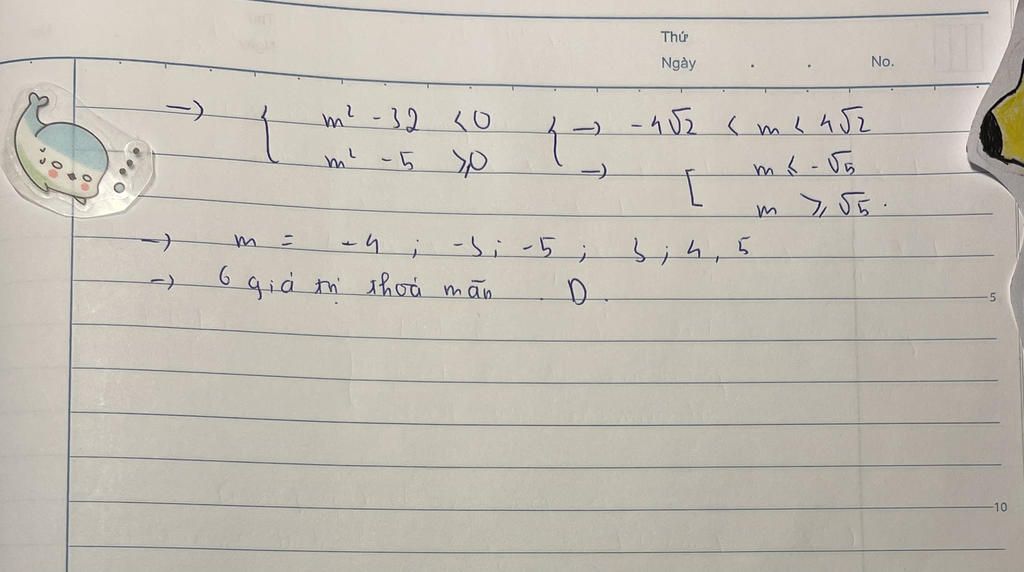 Thứ
Ngày . . No.
→ { m² - 32 < 0 { → -4√2 < m < 4√2
m² - 5 ⩾ 0 → [ m ⩽ -√5
m ⩾ √5.
→ m = -4 ; -3 ; -5 ; 3 ; 4, 5
→ 6 giá trị thoả mãn. D.
5
10